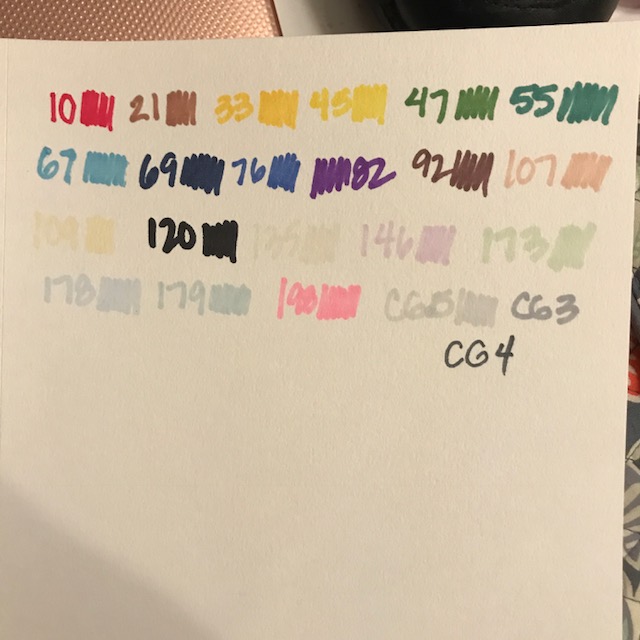 10 21 33 45 47 55
67 69 76 82 92 107
109 120 135 146 173
178 179 198 CG0.5 CG3
CG4